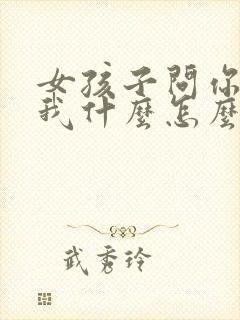 女孩子問你
我什麼怎麼
武秀玲